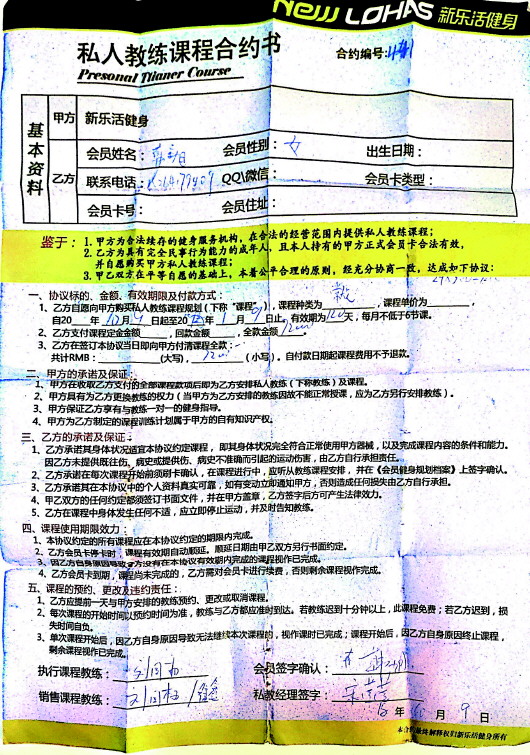 New LOHAS 新乐活健身
私人教练课程合约书
合约编号:
Presonal Ttianer Course
基本资料
甲方 新乐活健身
乙方
会员姓名: 会员性别: 女 出生日期:
联系电话: QQ\微信: 会员卡类型:
会员卡号: 会员住址:
鉴于: 1. 甲方为合法续存的健身服务机构，在合法的经营范围内提供私人教练课程;
2. 乙方为具有完全民事行为能力的成年人，且本人持有的甲方正式会员卡合法有效，
并自愿购买甲方私人教练课程;
3. 甲乙双方在平等自愿的基础上，本着公平合理的原则，经充分协商一致，达成如下协议:
一、协议标的、金额、有效期限及付款方式:
1、乙方自愿向甲方购买私人教练课程规划（下称“课程”）, 课程种类为 课程单价为 ,
自20 年 月 日起至20 年 月 日止, 有效期为 天, 每月不低于6节课。
2、乙方支付课程定金金额 , 回款金额 , 全款金额 。
3、乙方在签订本协议当日即向甲方付清课程全款:
共计RMB: (大写), (小写)。自付款日期起课程费用不予退款。
二、甲方的承诺及保证:
1、甲方在收取乙方支付的全部课程款项后即为乙方安排私人教练（下称教练）及课程。
2、甲方具有为乙方更换教练的权力（当甲方为乙方安排的教练因故不能正常授课，应为乙方另行安排教练）。
3、甲方保证乙方享有与教练一对一的健身指导。
4、甲方为乙方制定的课程训练计划属于甲方的自有知识产权。
三、乙方的承诺及保证:
1、乙方承诺其身体状况适宜本协议约定课程，即其身体状况完全符合正常使用甲方器械，以及完成课程内容的条件和能力。
因乙方未提供既往伤、病史或提供伤、病史不准确而引起的运动伤害，由乙方自行承担责任。
2、乙方承诺在每次课程开始前须刷卡确认，在课程进行中，应听从教练课程安排，并在《会员健身规划档案》上签字确认。
3、乙方承诺其在本协议中的个人资料真实可靠，如有变动立即通知甲方，否则造成任何损失由乙方自行承担。
4、甲乙双方的任何约定都须签订书面文件，并在甲方盖章，乙方签字后方可产生法律效力。
5、乙方在课程中身体发生任何不适，应立即停止运动，并及时告知教练。
四、课程使用期限效力:
1、本协议约定的所有课程应在本协议约定的期限内完成。
2、乙方会员卡停卡时，课程有效期自动顺延。顺延日期由甲乙双方另行书面约定。
3、因乙方自身原因导致乙方没有在本协议有效期内完成的课程视作已完成。
4、乙方会员卡到期，课程尚未完成的，乙方需对会员卡进行续费，否则剩余课程视作完成。
五、课程的预约、更改及违约责任:
1、乙方应提前一天与甲方安排的教练预约、更改或取消课程。
2、每次课程的开始时间以预约时间为准，教练与乙方都应准时到达。若教练迟到十分钟以上，此课程免费；若乙方迟到，损
失时间自负。
3、单次课程开始后，因乙方自身原因导致无法继续本次课程的，视作课时已完成；课程开始后，因乙方自身原因终止课程，
剩余课程视作已完成。
执行课程教练: 会员签字确认:
销售课程教练: 私教经理签字:
年 月 9 日
本合约最终解释权归新乐活健身所有